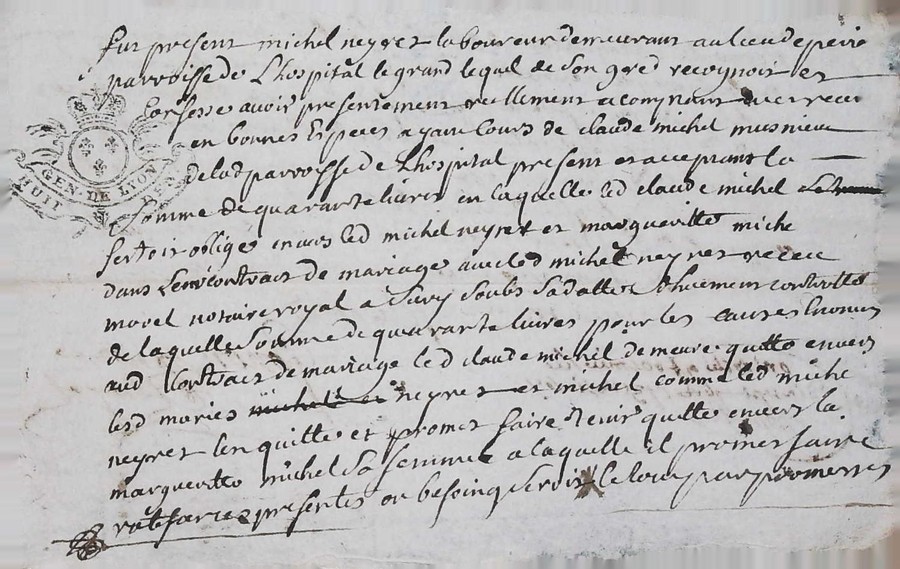 fut present michel neyret laboureur demeurant au lieu de
parroisse de Lhospital le grand lequel de son gré recognoit et
Confesse avoir presentement reellement a comptant receu
en bonnes Especes ayant Cours de claude michel
de lad parroisse de Lhospital present et acceptant la
somme de quarante livres en laquelle led claude michel
sestoit obligé envers led michel neyret et margueritte miche
dans Leur contract de mariage avec led michel neyret receu
morel notaire royal a Sury soubs sa datte controllé
de laquelle Somme de quarante livres pour les causes Enonces
aud Contract de mariage led claude michel demeure quitte envers
les d mariés neyret et michel comme led miche
neyret len quitte et promet faire tenir quitte envers la
margueritte michel Sa femme a laquelle il promet faire
ratifier presentes ou besoing seroit le tout par promesses
GEN. DE LYON
HUIT DEN